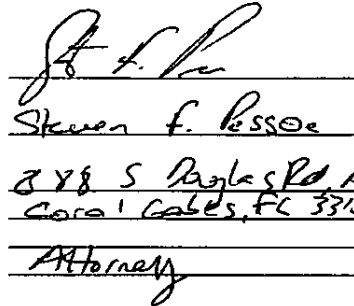 Steven F. Pessoe
S Douglas Rd, A
Coral Gables, FL 331
Attorney